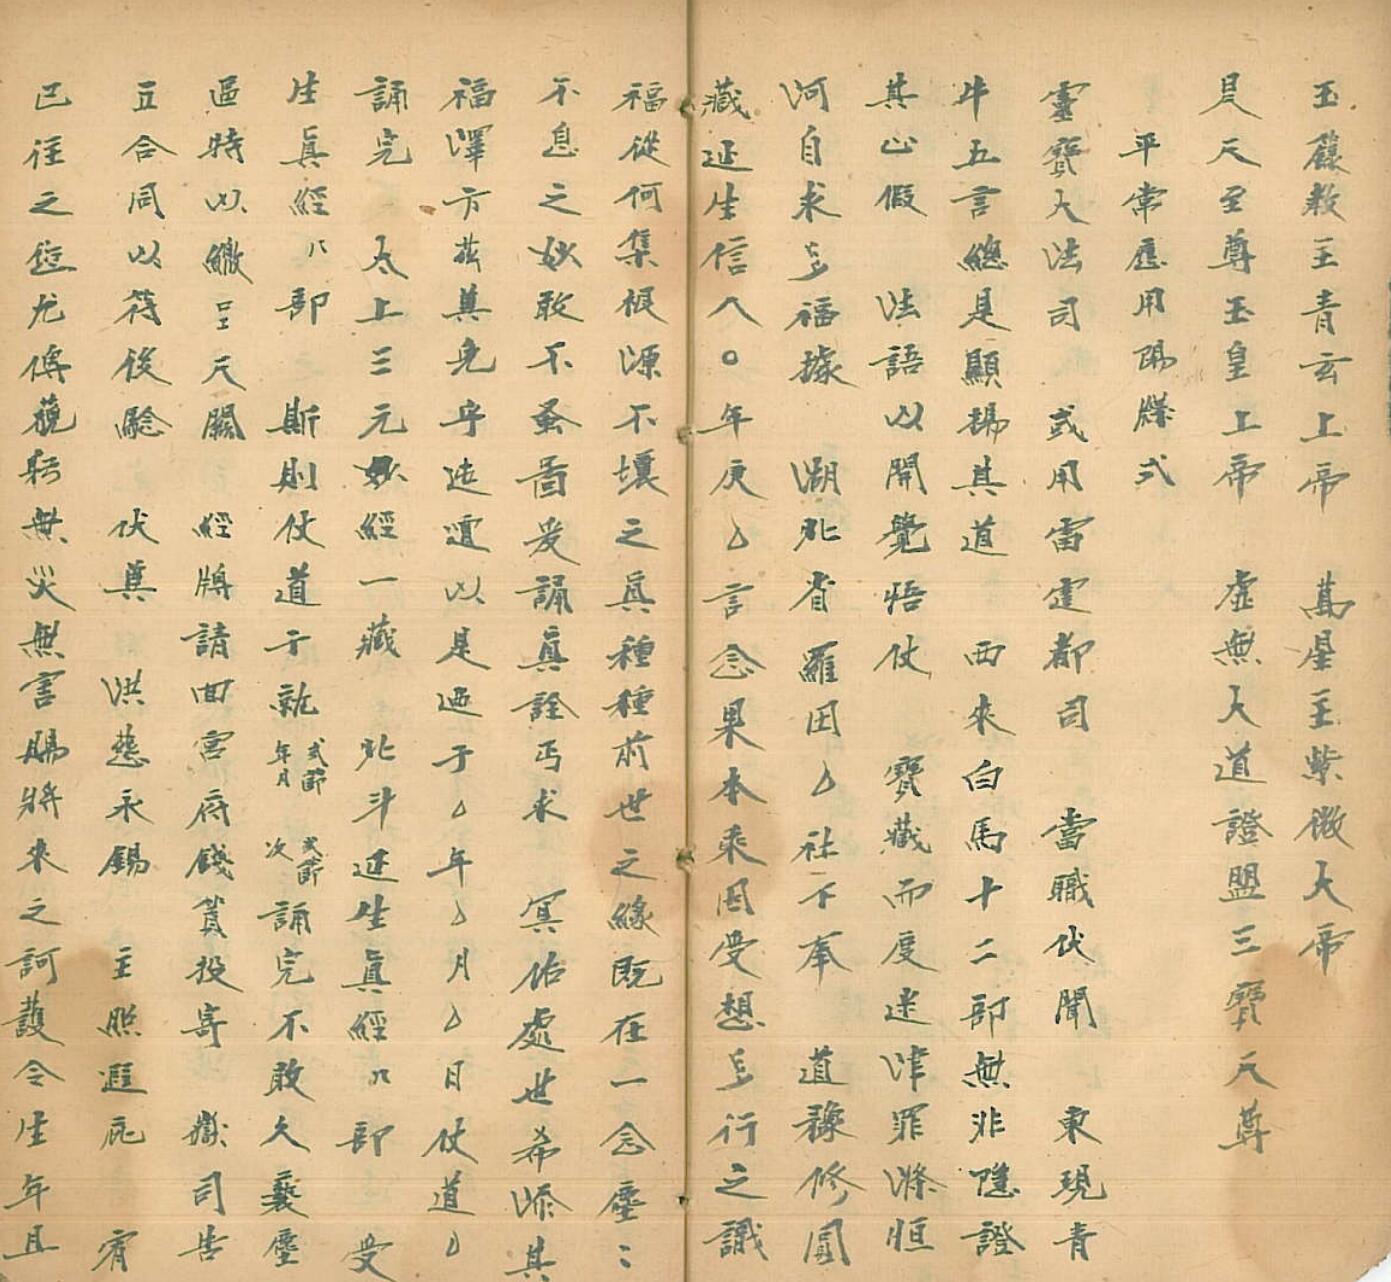 玉籙教主青玄上帝　萬星主紫微大帝
昊天至尊玉皇上帝　虛無大道證盟三寶天尊
平常應用陽牒式
靈寶大法司　或用雷霆都司　當職伏聞　東現青
牛五言總是顯揚其道　西來白馬十二部無非隱證
其心假　法語以開覺悟仗　寶藏而度迷津罪滌恒
河自求多福據　湖北省羅田厶社下奉　道豫修圓
藏延生信人〇年庚厶言念果本乘因受想多行之識
福從何集根源不壞之真種種前世之緣既在一念塵〻
不息之妙敢不蚤啚爰誦真詮丐求　冥佑處世希添其
福澤方茲冀免乎迍邅以是迺于厶年厶月厶日仗道厶
誦完　太上三元妙經一藏　北斗延生真經八部　受
生真經八部　斯則仗道于就　年月　弍節　次　弍節　誦完不敢久褻塵
逼特以繳呈天關　經牌請回宮府錢貲投寄　嶽司告
立合同以符後驗　伏冀　洪慈永錫　主照遐庇　宥
已往之愆尤俾藐躬無災無害賜將來之訶護令生年且